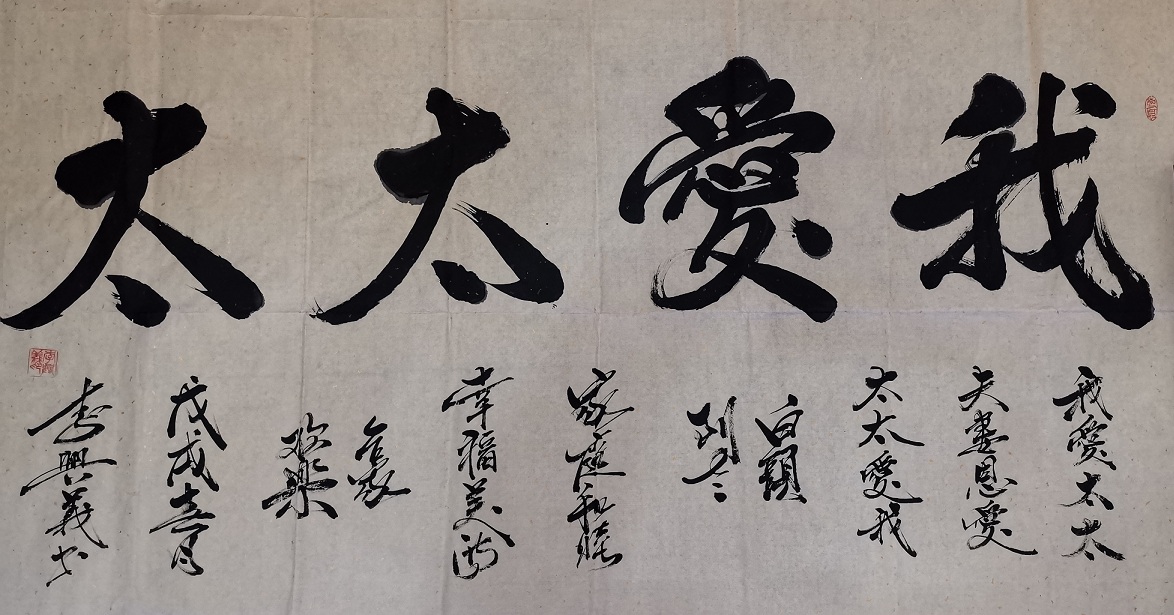 我愛太太
我愛太太
夫妻恩愛
太太愛我
白頭
到老
家庭和睦
幸福美满
合家
欢樂
戊戌喜月
李興義书